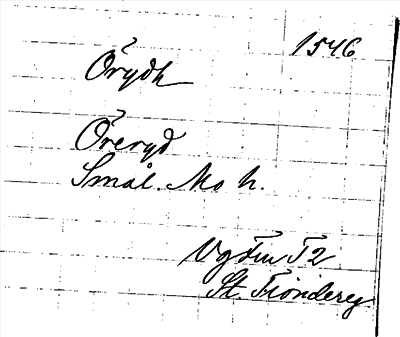 1546
Örydh
Öreryd
Smål. Mo h.
Vg Fru T2
St. Tiönderey